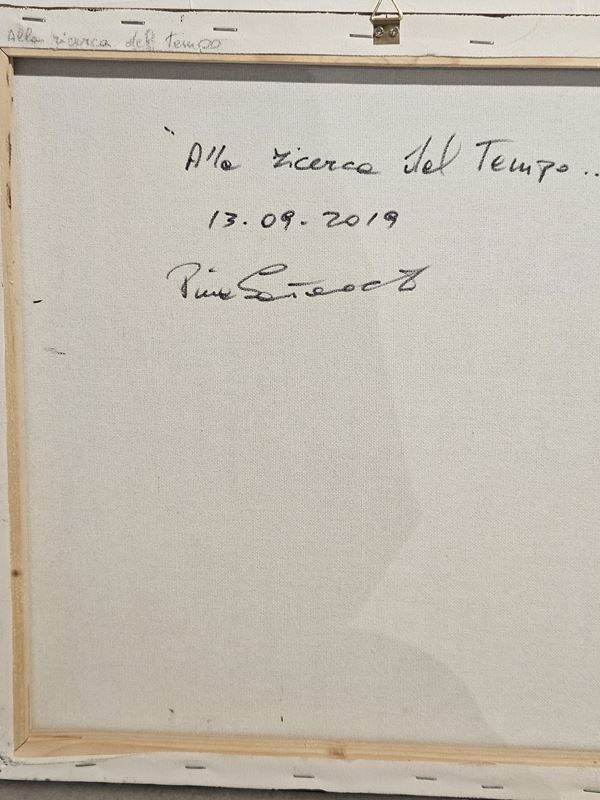 Alla ricerca del Tempo
Alla ricerca del Tempo..
13.09.2019
Pina